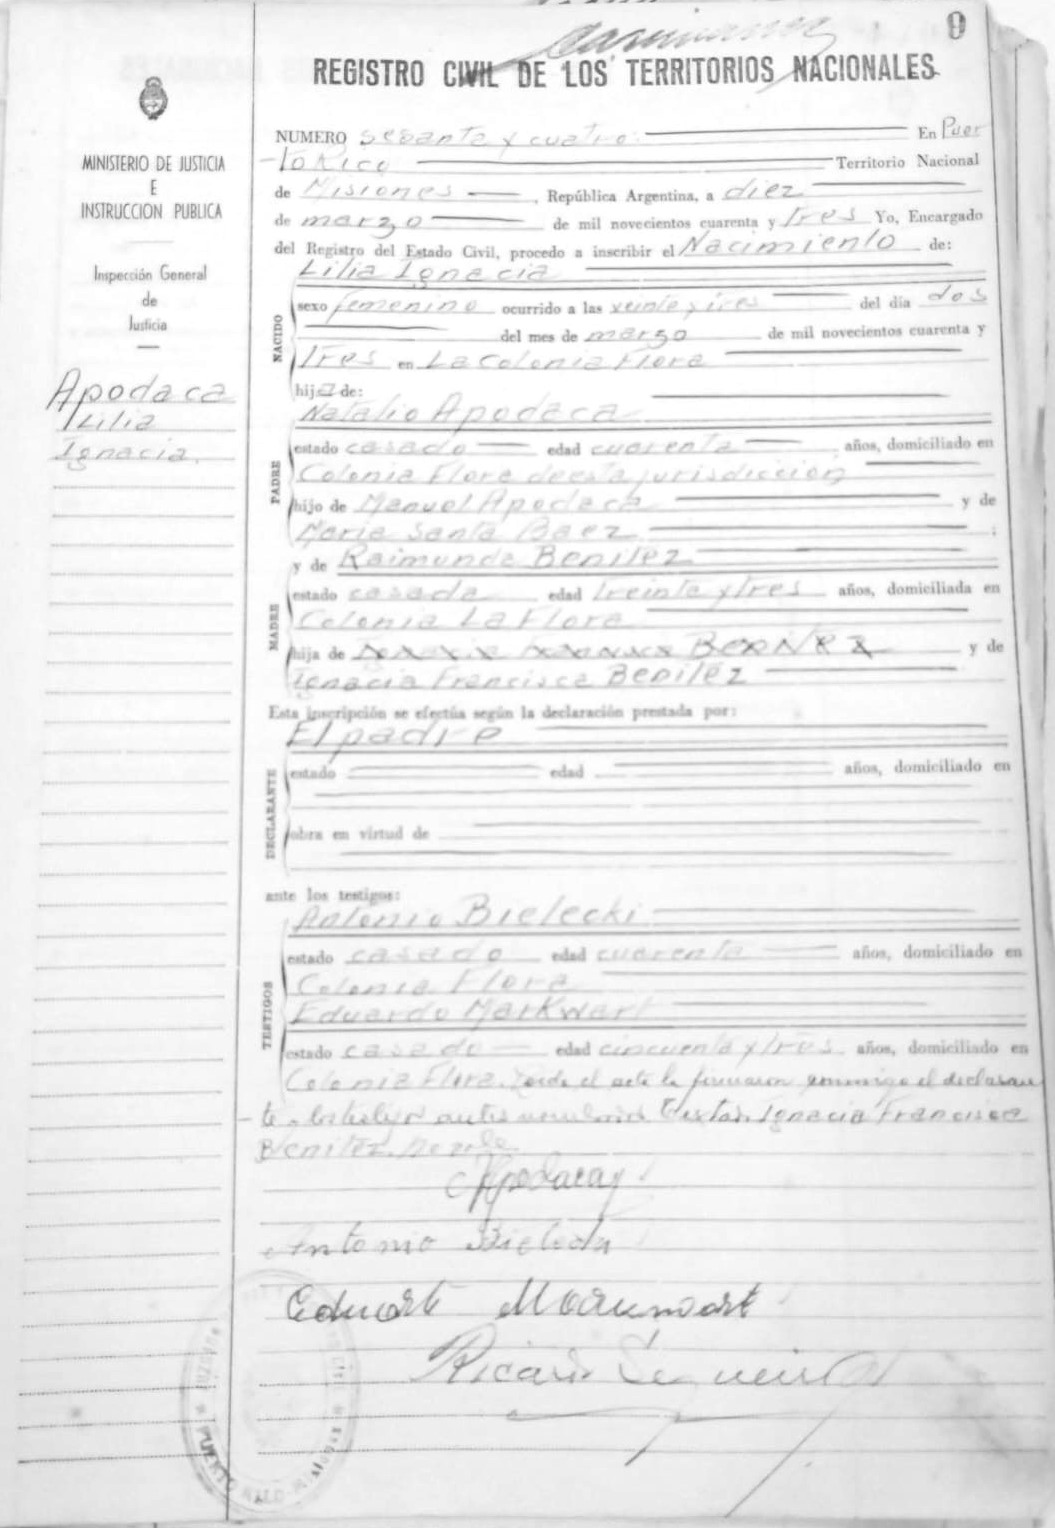 9
REGISTRO CIVIL DE LOS TERRITORIOS NACIONALES
MINISTERIO DE JUSTICIA
E
INSTRUCCION PUBLICA
Inspección General
de
Justicia
Apodaca
Lilia
Ignacia.
NUMERO sesenta y cuatro. En Puer
-to Rico Territorio Nacional
de Misiones, República Argentina, a diez
de marzo de mil novecientos cuarenta y tres Yo, Encargado
del Registro del Estado Civil, procedo a inscribir el Nacimiento de:
Lilia Ignacia
NACIDO
sexo femenino ocurrido a las veinte y tres del día dos
del mes de marzo de mil novecientos cuarenta y
Tres en La Colonia Flora
hija de:
Natalio Apodaca
PADRE
estado casado edad cuarenta años, domiciliado en
Colonia Flora de esta jurisdiccion
hijo de Manuel Apodaca y de
Maria Santa Baez
y de Raimunda Benitez
MADRE
estado casada edad treinta y tres años, domiciliada en
Colonia La Flora
hija de y de
Ignacia Francisca Benitez
Esta inscripción se efectúa según la declaración prestada por:
El padre
DECLARANTE
estado edad años, domiciliado en
obra en virtud de
ante los testigos:
Antonio Bielecki
TESTIGOS
estado casado edad cuarenta años, domiciliado en
Colonia Flora
Eduardo Markwart
estado casado edad cincuenta y tres años, domiciliado en
Colonia Flora. el acta la firmaron conmigo el declaran
te Ignacia Francisca
Benitez.
Apodaca
Antonio Bielecki
Ricardo
PUERTO RICO Misiones